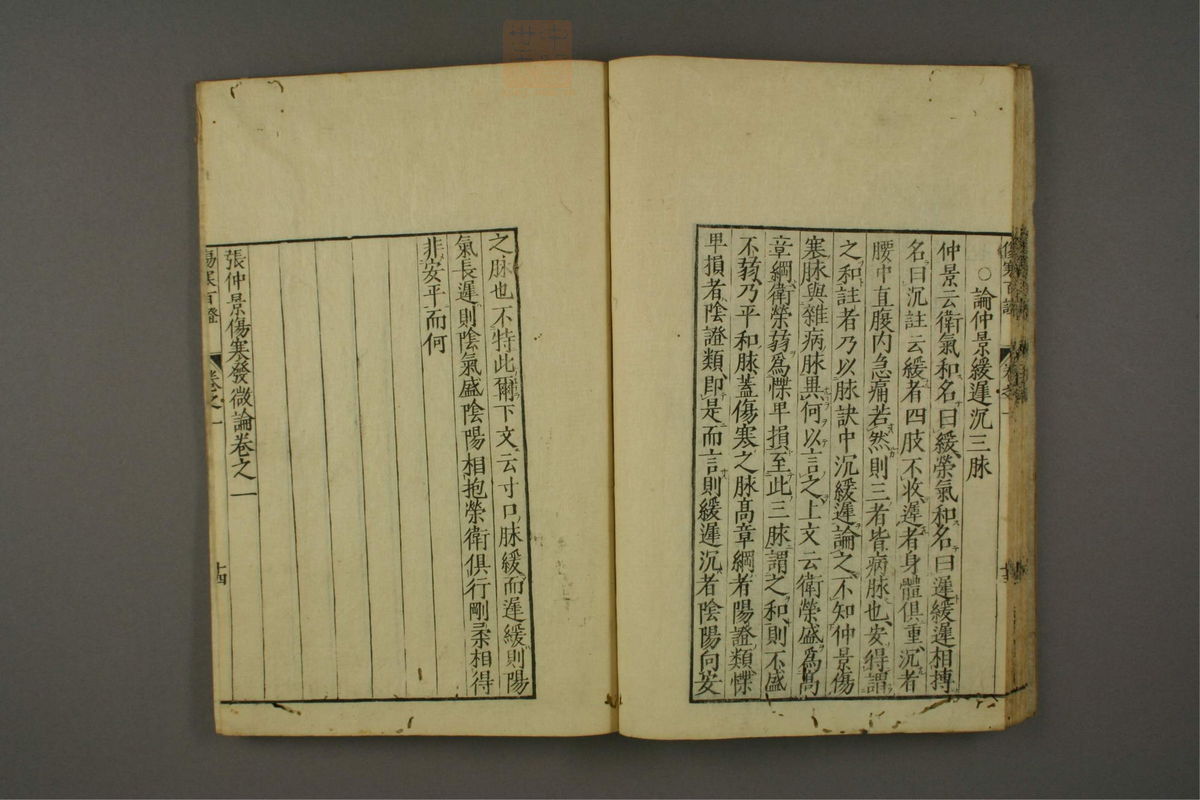 ○論仲景緩遲沉三脉
仲景云衛氣和名曰緩榮氣和名曰遲緩遲相摶
名曰沉註云緩者四肢不收遲者身體俱重沉者
腰中直腹内急痛若然則三者皆病脉也安得謂
之和註者乃以脉訣中沉緩遲論之不知仲景傷
寒脉與雜病脉異何以言之上文云衛榮盛爲髙
章綱衛榮弱爲惵卑損至此三脉謂之和則不盛
不弱乃平和脉蓋傷寒之脉髙章綱者陽證類惵
卑損者陰證類即是而言則緩遲沉者陰陽向安
之脉也不特此爾下文云寸口脉緩而遲緩則陽
氣長遲則陰氣盛陰陽相抱榮衛俱行剛柔相得
非安平而何
張仲景傷寒發微論卷之一
傷寒百證
卷之一
十四